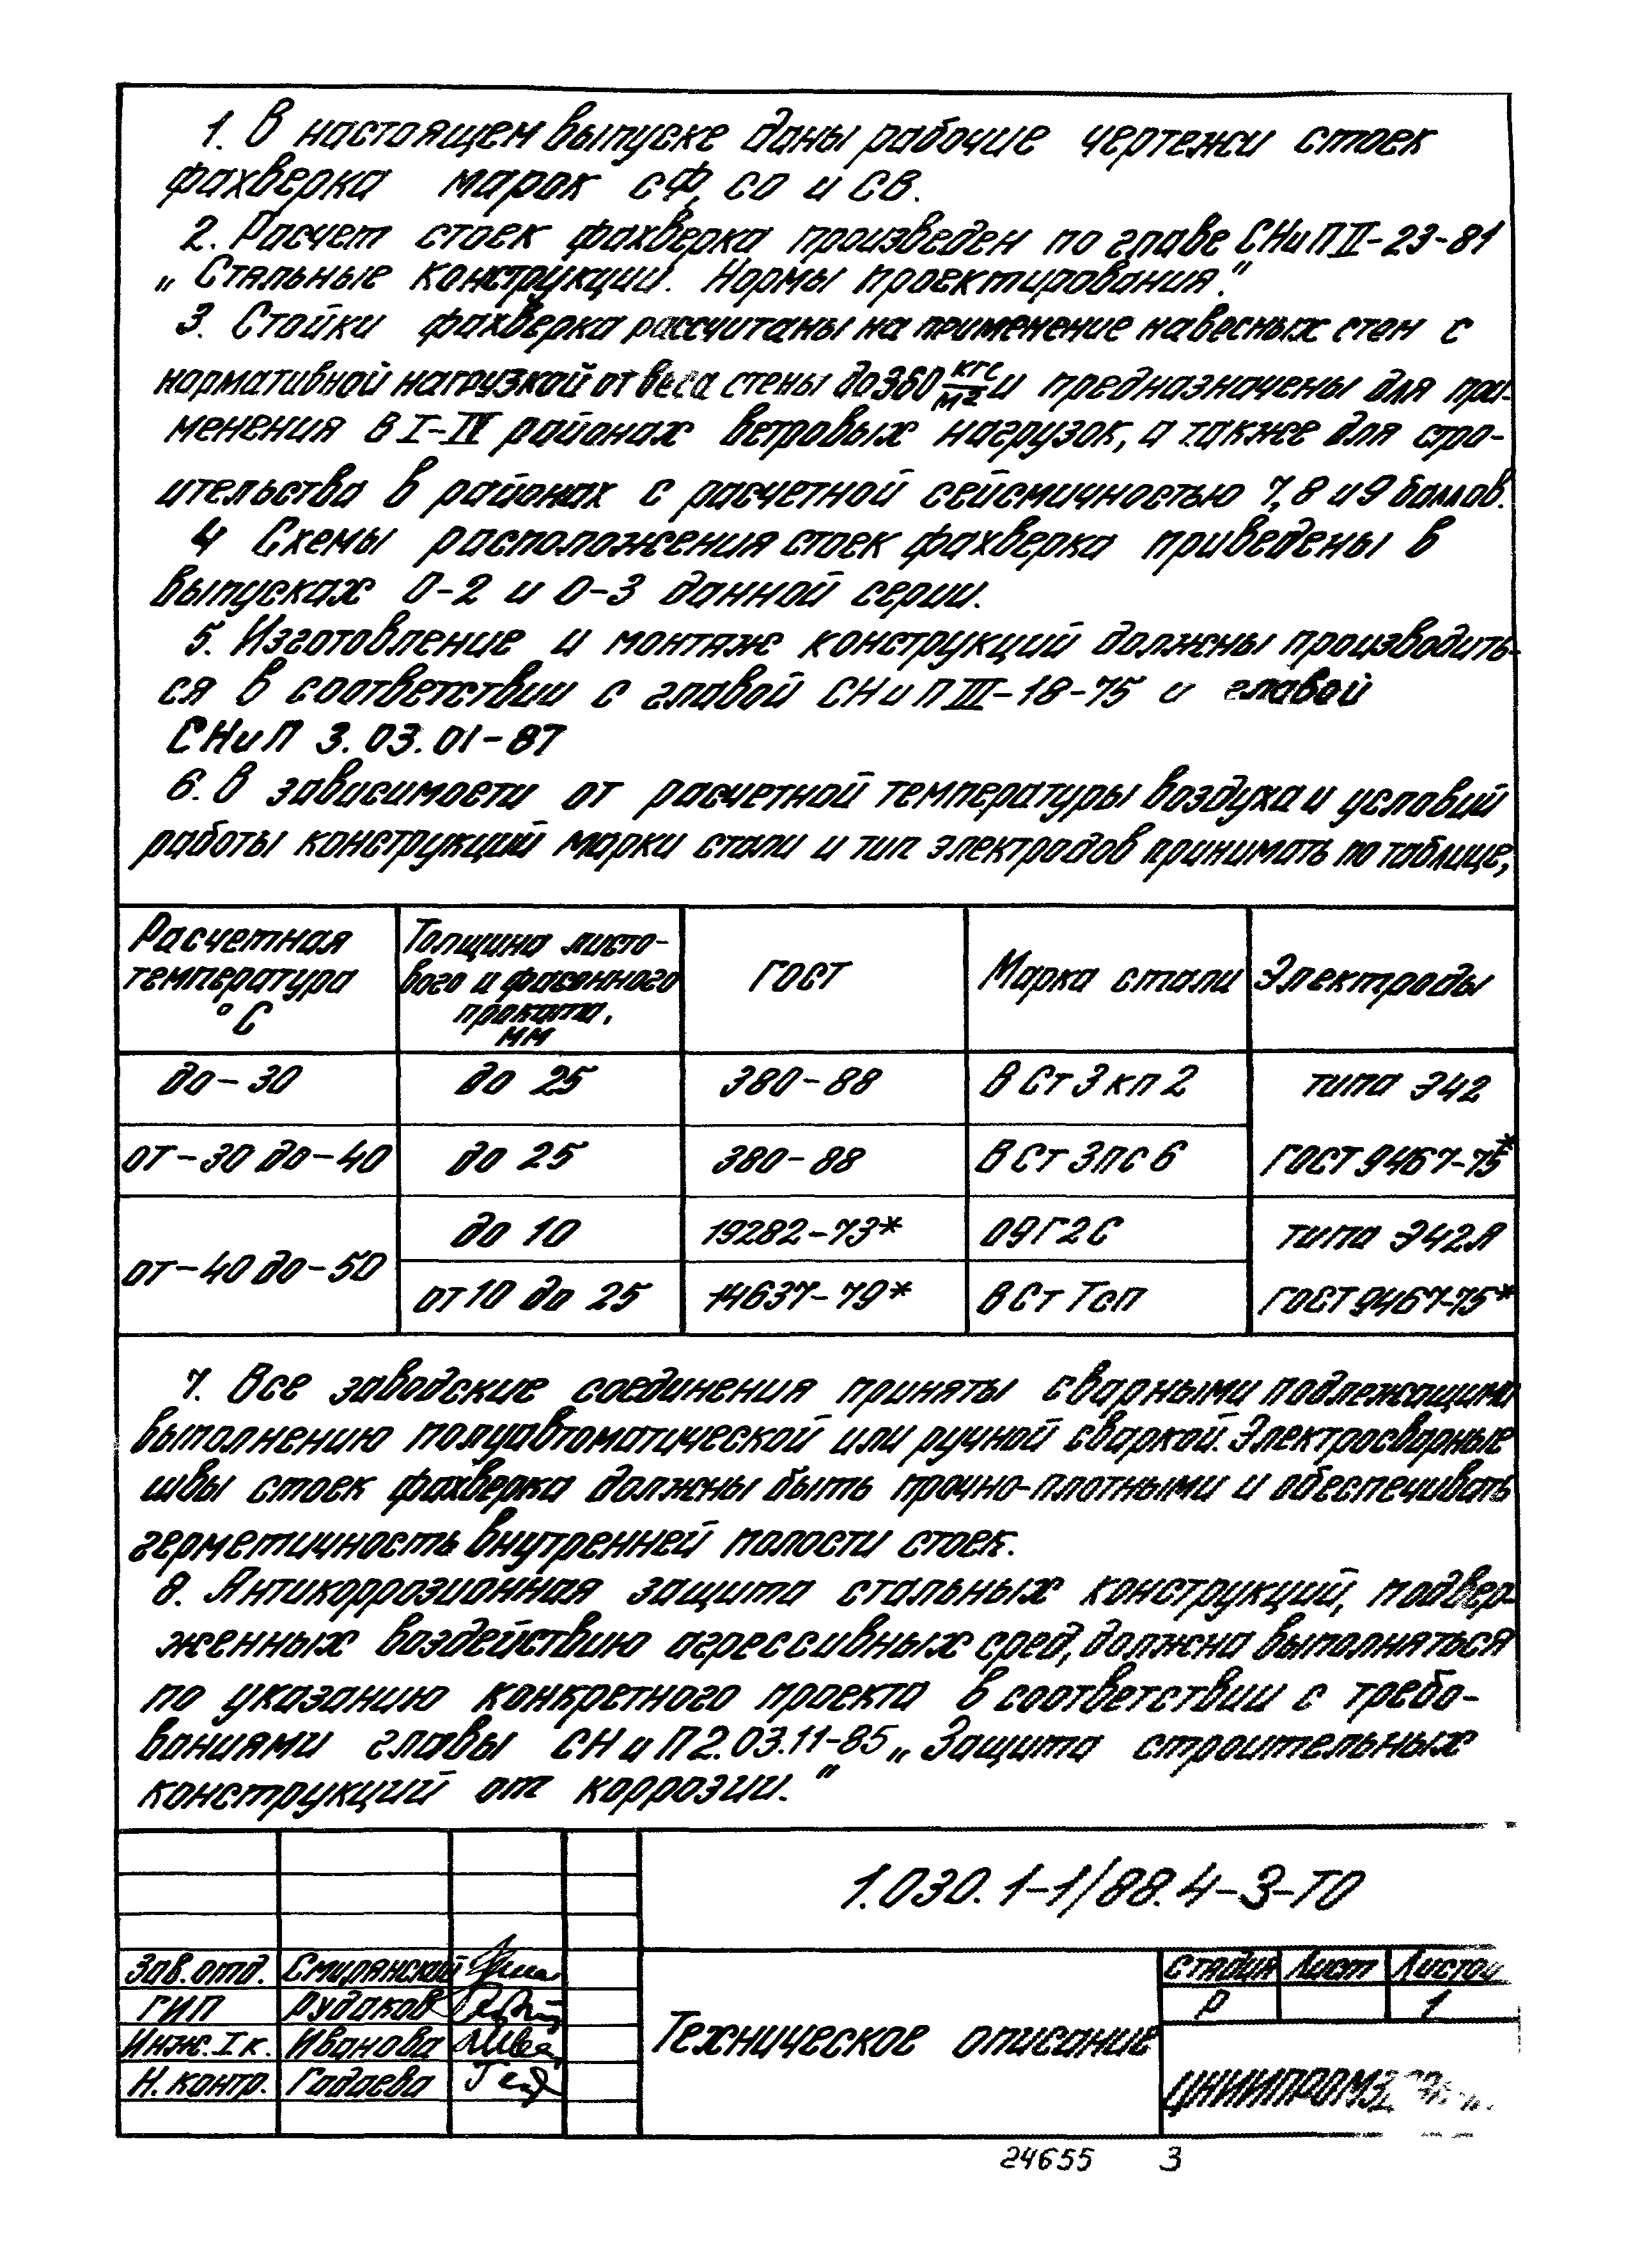 1. В настоящем выпуске даны рабочие чертежи стоек
фахверка марок СФ, СО и СВ.
2. Расчет стоек фахверка произведен по главе СНиП II-23-81
„Стальные конструкции. Нормы проектирования."
3. Стойки фахверка рассчитаны на применение навесных стен с
нормативной нагрузкой от веса стены до 360 кгс/м2 и предназначены для при-
менения в I-IV районах ветровых нагрузок, а также для стро-
ительства в районах с расчетной сейсмичностью 7, 8 и 9 баллов.
4 Схемы расположения стоек фахверка приведены в
выпусках 0-2 и 0-3 данной серии.
5. Изготовление и монтаж конструкций должны производить-
ся в соответствии с главой СНиП III-18-75 и главой
СНиП 3.03.01-87
6. В зависимости от расчетной температуры воздуха и условий
работы конструкций марки стали и тип электродов принимать по таблице,
Расчетная температура °С
Толщина листо-
вого и фасонного
проката, мм
ГОСТ
Марка стали
Электроды
до -30 до 25 380-88 В Ст 3 кп 2 типа Э42
от -30 до -40 до 25 380-88 В Ст 3 пс 6 ГОСТ 9467-75*
от -40 до -50
до 10 19282-73* 09Г2С типа Э42А
от 10 до 25 14637-79* В Ст Тсп ГОСТ 9467-75*
7. Все заводские соединения приняты сварными подлежащими
выполнению полуавтоматической или ручной сваркой. Электросварные
швы стоек фахверка должны быть прочно-плотными и обеспечивать
герметичность внутренней полости стоек.
8. Антикоррозионная защита стальных конструкций, подвер-
женных воздействию агрессивных сред, должна выполняться
по указанию конкретного проекта в соответствии с требо-
ваниями главы СНиП 2.03.11-85 „Защита строительных
конструкций от коррозии."
1.030.1-1/88.4-3-ТО
Зав. отд. Смилянский
ГИП Рудаков
Инж. I к. Иванова
Н. контр. Гадаева
Техническое описание
Стадия Лист Листов
Р 1
24655 3